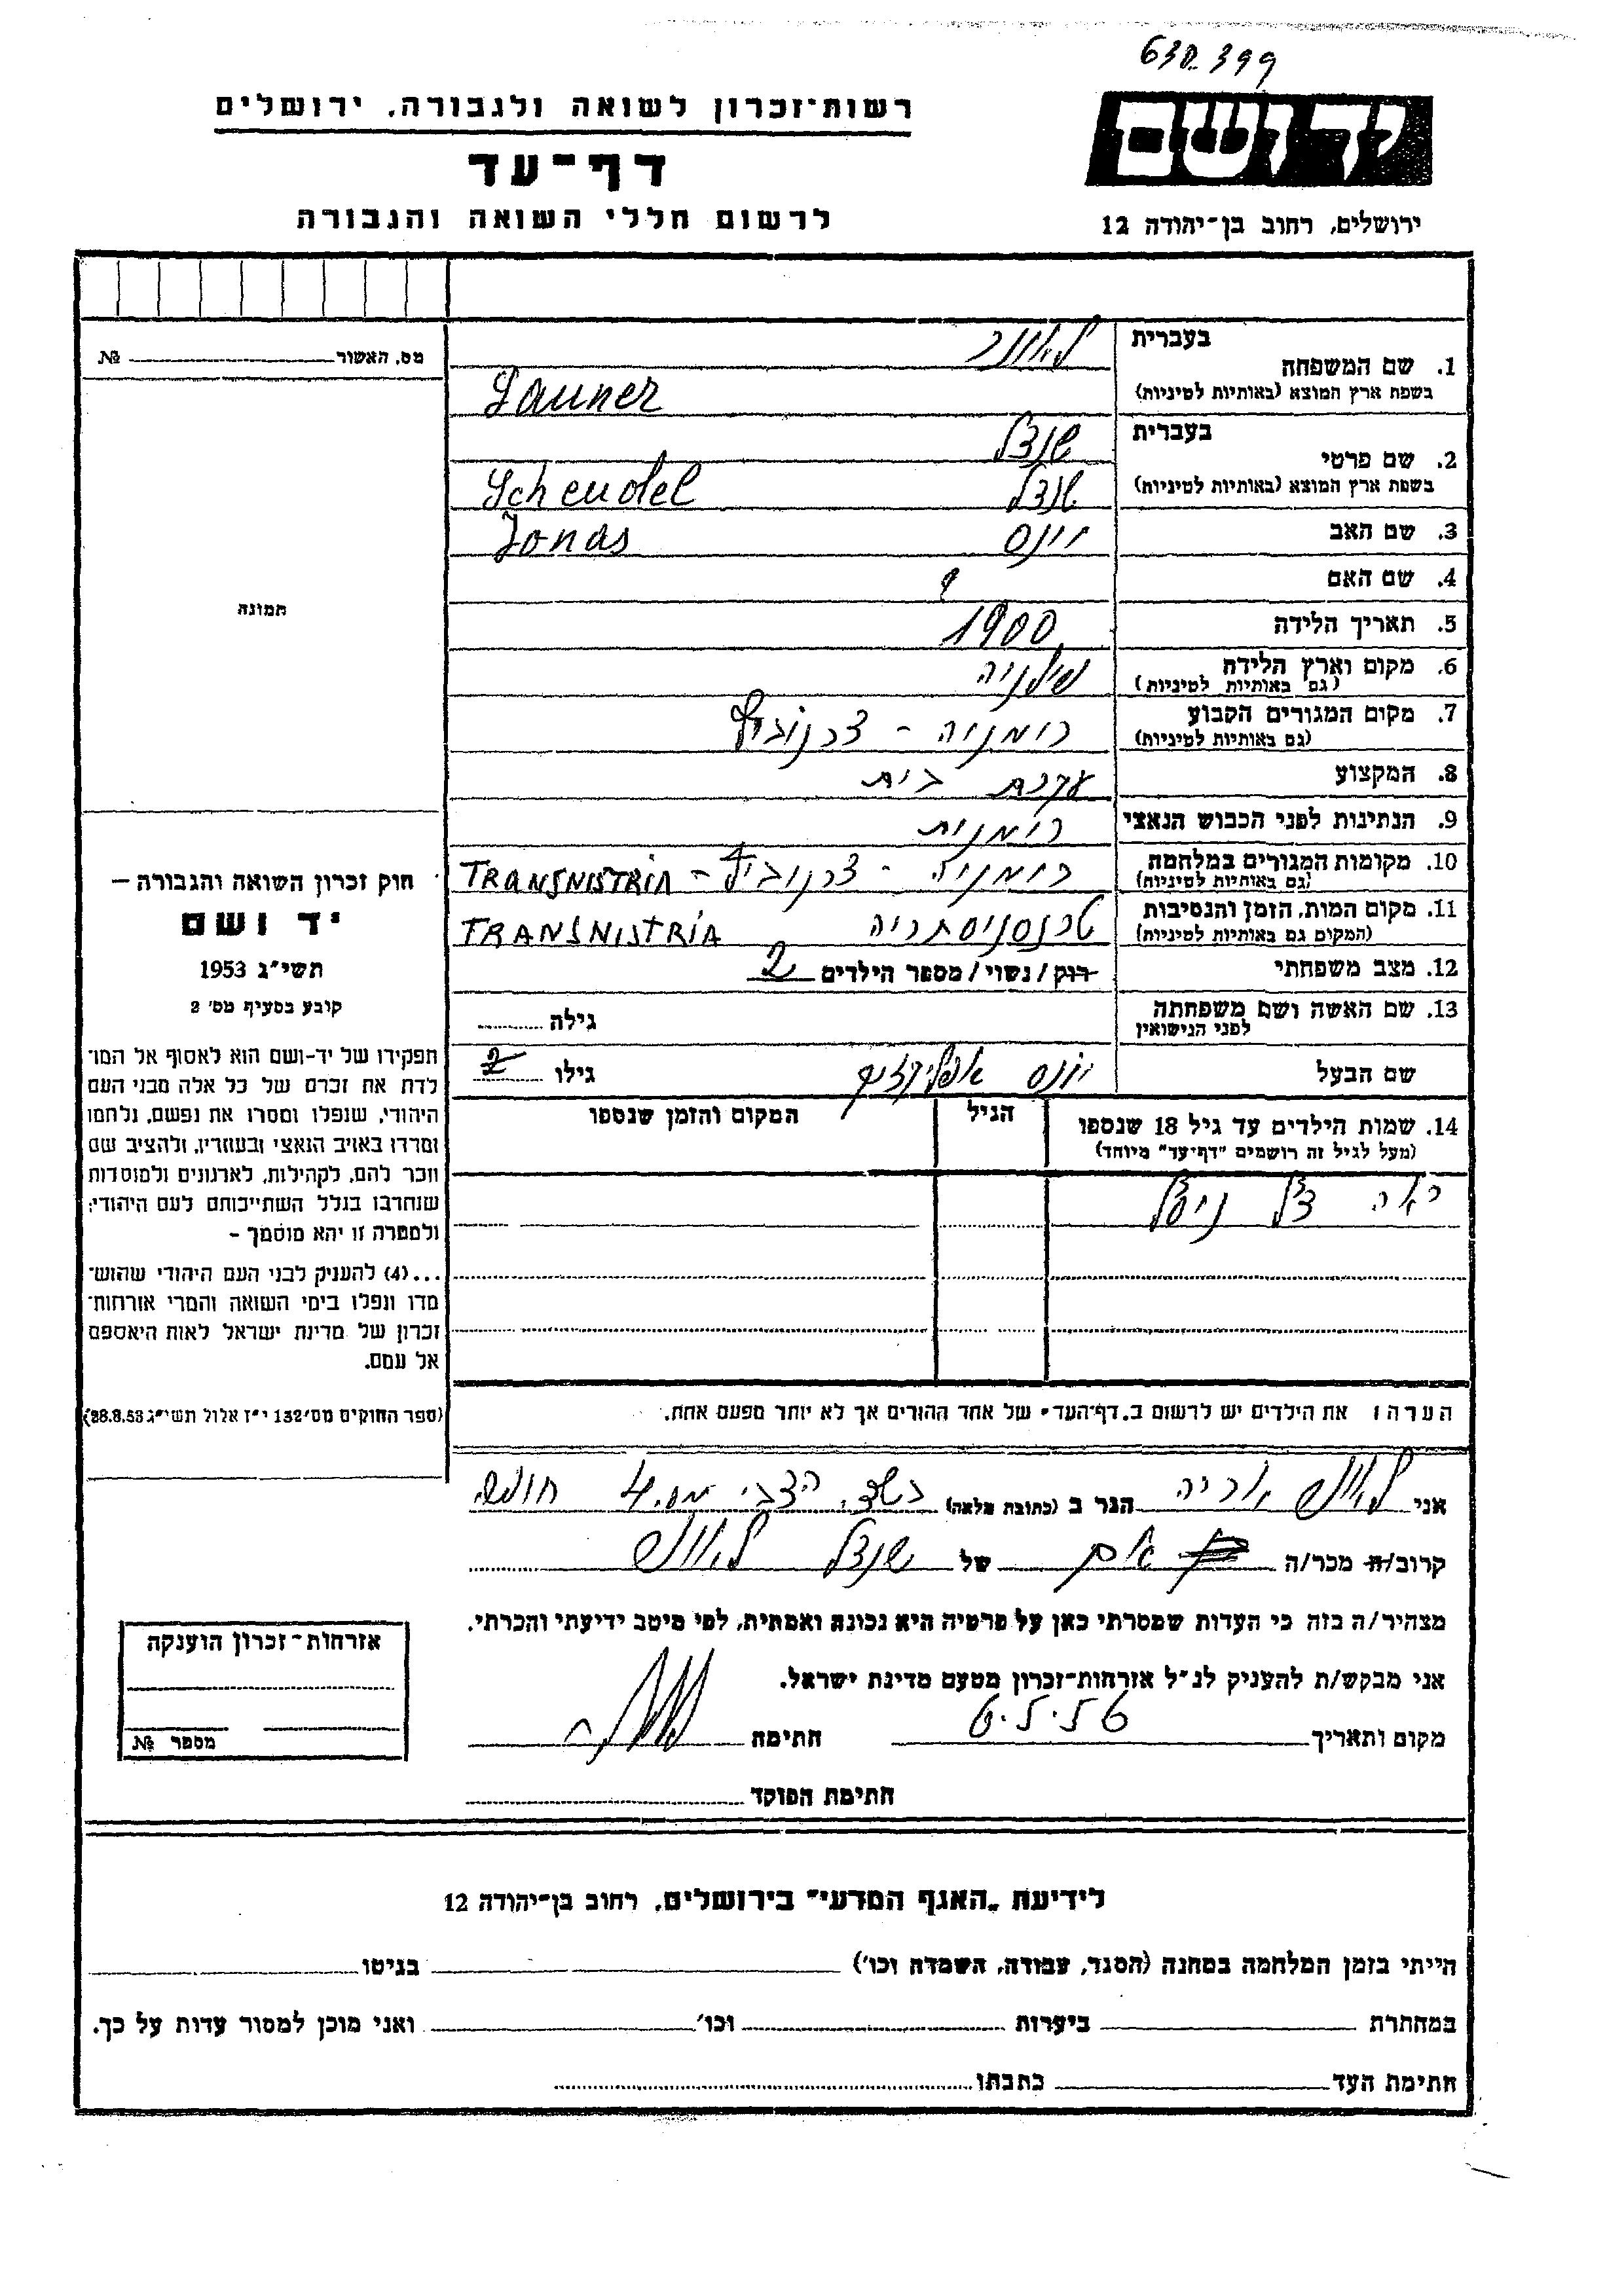 630.399
רשות־זכרון לשואה ולגבורה, ירושלים
דף־עד
לרשום חללי השואה והגבורה
יד ושם
ירושלים, רחוב בן־יהודה 12
מס. האשור № 
בעברית
1. שם המשפחה
בשפת ארץ המוצא (באותיות לטיניות)
לאונר
Launer
בעברית
2. שם פרטי
בשפת ארץ המוצא (באותיות לטיניות)
שנדל
Scheudel
שנדל
3. שם האב יונס Jonas
4. שם האם ?
5. תאריך הלידה 1900
6. מקום וארץ הלידה
(גם באותיות לטיניות)
7. מקום המגורים הקבוע רומניה - צרנוביץ
(גם באותיות לטיניות)
8. המקצוע עקרת בית
9. הנתינות לפני הכבוש הנאצי רומנית
10. מקומות המגורים במלחמה רומניה - צרנוביץ - TRANSNISTRIA
(גם באותיות לטיניות)
11. מקום המות, הזמן והנסיבות טרנסניסתריה TRANSNISTRIA
(המקום גם באותיות לטיניות)
12. מצב משפחתי רוק / נשוי / מספר הילדים 2
13. שם האשה ושם משפחתה
לפני הנישואין
גילה
שם הבעל יונס גילו
14. שמות הילדים עד גיל 18 שנספו הגיל המקום והזמן שנספו
(מעל לגיל זה רושמים "דף־עד" מיוחד)
הערה: את הילדים יש לרשום ב„דף־העד" של אחד ההורים אך לא יותר מפעם אחת.
תמונה
חוק זכרון השואה והגבורה —
יד ושם
תשי"ג 1953
קובע בסעיף מס' 2
תפקידו של יד-ושם הוא לאסוף אל המו־
לדת את זכרם של כל אלה מבני העם
היהודי, שנפלו ומסרו את נפשם, נלחמו
ומרדו באויב הנאצי ובעוזריו, ולהציב שם
וזכר להם, לקהילות, לארגונים ולמוסדות
שנחרבו בגלל השתייכותם לעם היהודי;
ולמטרה זו יהא מוסמך —
...(4) להעניק לבני העם היהודי שהוש־
מדו ונפלו בימי השואה והמרי אזרחות־
זכרון של מדינת ישראל לאות היאספם
אל עמם.
(ספר החוקים מס' 132 י"ז אלול תשי"ג 28.8.53)
אני לאונר אריה הגר ב (כתובת מלאה) הצבי מס. 4
קרוב/ה מכר/ה של שנדל לאונר
מצהיר/ה בזה כי העדות שמסרתי כאן על פרטיה היא נכונה ואמתית, לפי מיטב ידיעתי והכרתי.
אני מבקש/ת להעניק לנ"ל אזרחות־זכרון מטעם מדינת ישראל.
מקום ותאריך חתימה
חתימת הפוקד
אזרחות־זכרון הוענקה
מספר №
לידיעת „האגף המדעי" בירושלים, רחוב בן־יהודה 12
הייתי בזמן המלחמה במחנה (הסגר, עבודה, השמדה וכו') בגיטו
במחתרת ביערות וכו' ואני מוכן למסור עדות על כך.
חתימת העד כתבתו